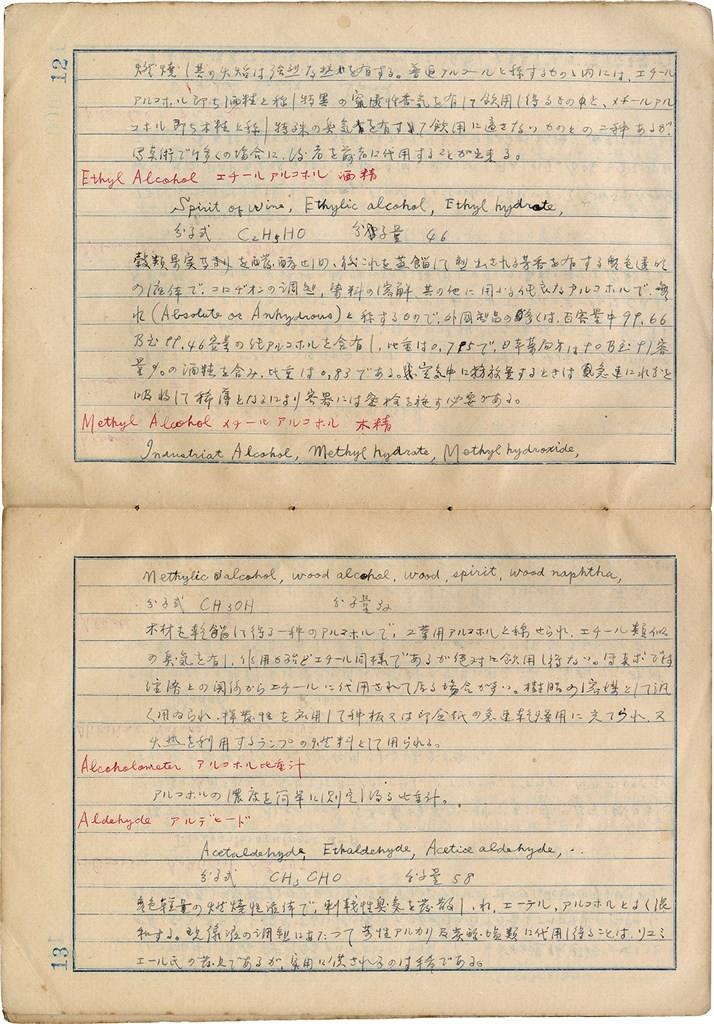 12
燃焼し其の火焔は強烈な熱を有する。普通アルコールと称するものゝ内には、エチール
アルコホル即ち酒精と称し特異の 香気を有して飲用し得るものと、メチールアル
コホル即ち木精と称し特殊の臭気を有すして飲用に適さないものとの二種あるが、
写真術で多くの場合に、後者を前者に代用することが出来る。
Ethyl Alcohol エチールアルコホル 酒精
Spirit of wine, Ethylic alcohol, Ethyl hydrate,
分子式 C2H5HO 分子量 46
穀類果実 を 醗酵せしめ、後これを蒸餾して 出される芳香を有する 色透明
の液体で、コロヂオンの調製、染料の溶解、其の他に用ふる純良なアルコホルで、
(Absolute or Anhydrous)と称するもので、外国製品の多くは、百容量中99.66
乃至99.46容量の純アルコホルを含有し、比重は0.795で、日本薬局方は90乃至91容
量%の酒精を含み、比重は0.83である。 空気中に放置するときは 急速に
吸収して稀薄となるにより容器には密栓を施す必要がある。
Methyl Alcohol メチールアルコホル 木精
Industrial Alcohol, Methyl hydrate, Methyl hydroxide,
Methylic alcohol, wood alcohol, wood spirit, wood naphtha,
分子式 CH3OH 分子量32
木材を乾餾して得る一種のアルコホルで、工業用アルコホルと称せられ、エチール類似
の臭気を有し、作用 殆どエチール同様であるが絶対に飲用し得ない。写真術では
経済上の関係からエチールに代用されて居る場合が多い。樹脂の溶媒として 
く用ゐられ、揮発性を応用して種板又は印画紙の急速乾燥用に充てられ、又
火熱を利用するランプの燃料として用られる。
Alcoholometer アルコホル比重計
アルコホルの濃度を簡単に測定し得る比重計。
Aldehyde アルデヒード
Acetaldehyde, Ethaldehyde, Acetice aldehyde,
分子式 CH3CHO 分子量58
 色 の燃焼性液体で、刺戟性臭気を発散し、水、エーテル、アルコホルとよく混
和する。現像液の調製にあたつて苛性アルカリ及炭酸塩類に代用し得ることは、リユミ
エール氏の発見であるが、実用に供されるのは稀である。
13